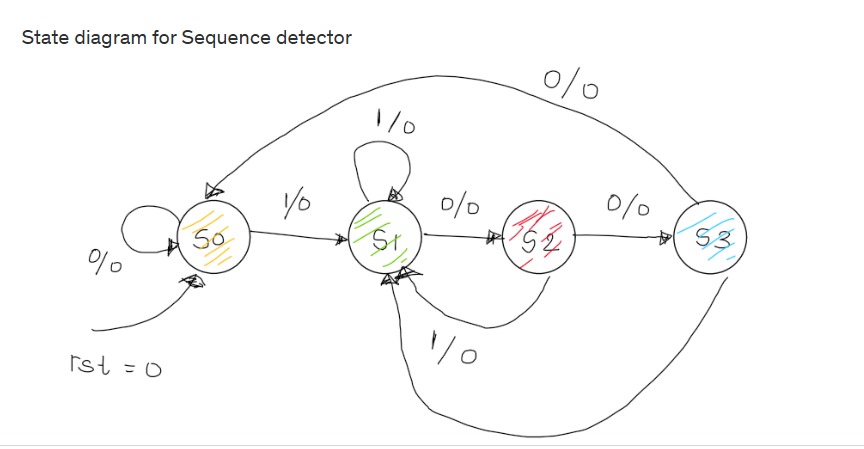 State diagram for Sequence detector
0/0
1/0
1/0
0/0
0/0
S0
S1
S2
S3
0/0
1/0
rst = 0